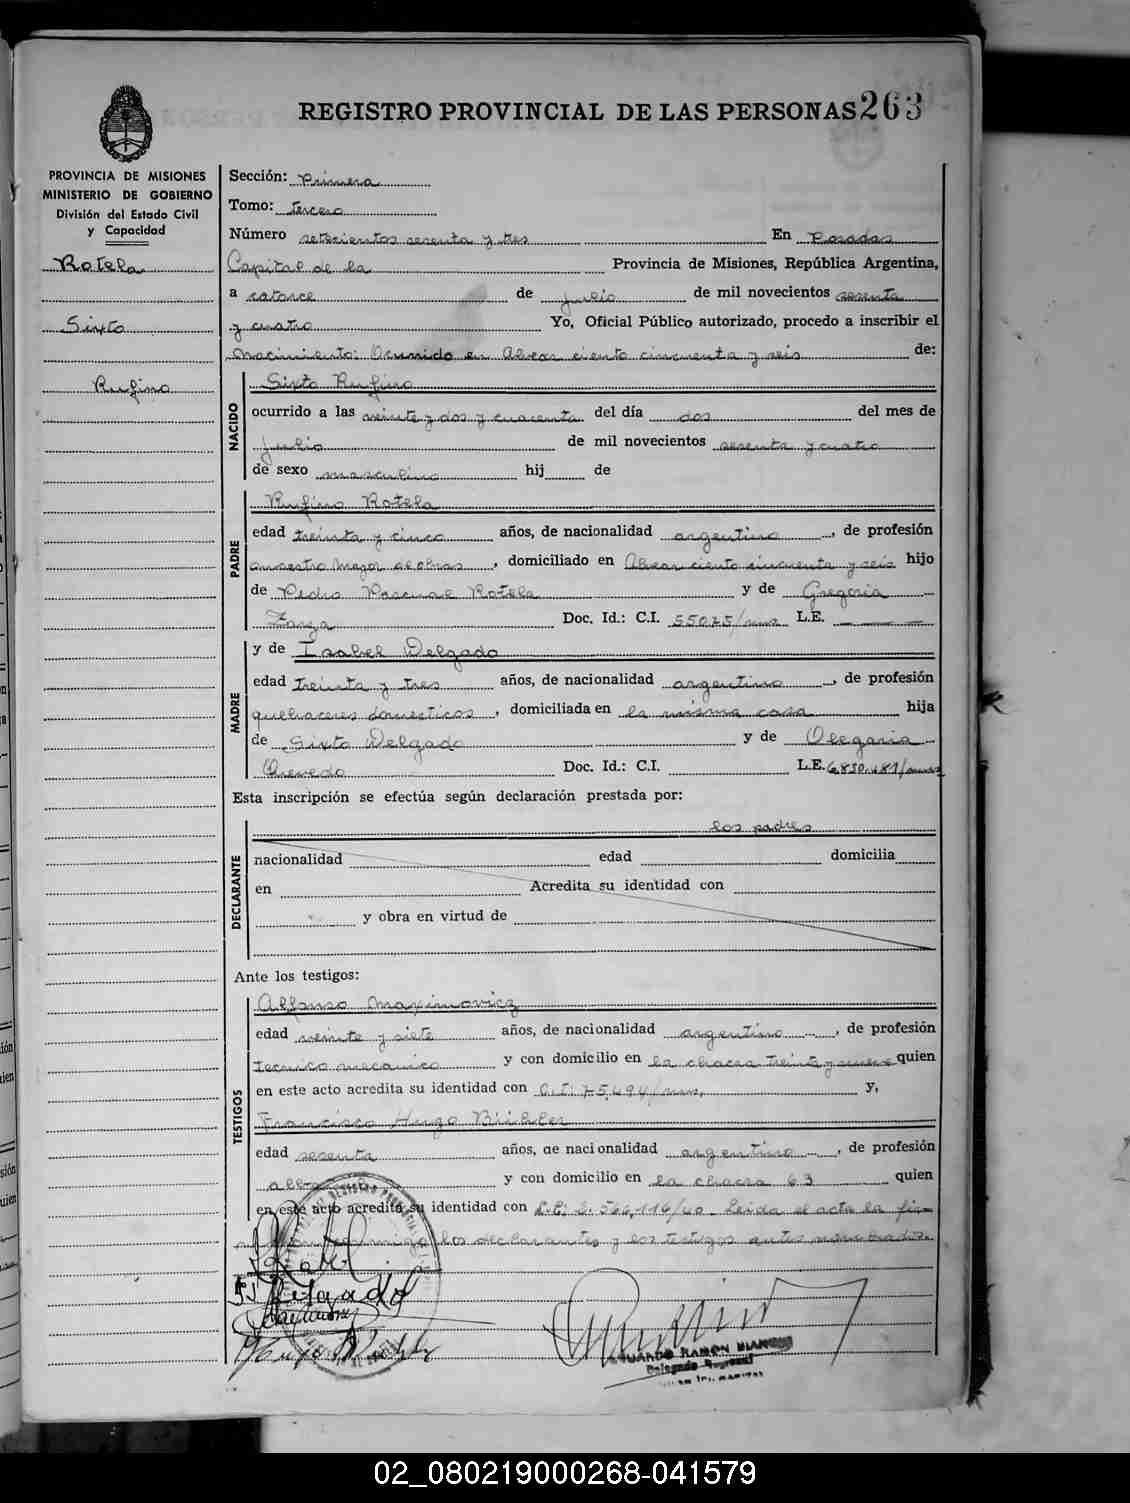 REGISTRO PROVINCIAL DE LAS PERSONAS 263
PROVINCIA DE MISIONES
MINISTERIO DE GOBIERNO
División del Estado Civil
y Capacidad
Rotela
Sixto
Rufino
Sección: Primera
Tomo: tercero
Número setecientos sesenta y tres En Posadas
Capital de la Provincia de Misiones, República Argentina,
a catorce de julio de mil novecientos sesenta
y cuatro Yo, Oficial Público autorizado, procedo a inscribir el
nacimiento: Ocurrido en Alvear ciento cincuenta y seis de:
NACIDO
Sixto Rufino
ocurrido a las veinte y dos y cuarenta del día dos del mes de
julio de mil novecientos sesenta y cuatro
de sexo masculino hij de
PADRE
Rufino Rotela
edad treinta y cinco años, de nacionalidad argentino, de profesión
maestro mayor de obras, domiciliado en Alvear ciento cincuenta y seis hijo
de Pedro Pascual Rotela y de Gregoria
Zarza Doc. Id.: C.I. 55025/mnes L.E. — — —
MADRE
y de Isabel Delgado
edad treinta y tres años, de nacionalidad argentino, de profesión
quehaceres domesticos, domiciliada en la misma casa hija
de Sixto Delgado y de Olegaria
Quevedo Doc. Id.: C.I. L.E. 6.830.481/mnes
Esta inscripción se efectúa según declaración prestada por:
los padres
DECLARANTE
nacionalidad edad domicilia
en Acredita su identidad con
y obra en virtud de
Ante los testigos:
TESTIGOS
Alfonso Maximovicz
edad veinte y siete años, de nacionalidad argentino, de profesión
tecnico mecanico y con domicilio en la chacra treinta y nueve quien
en este acto acredita su identidad con C.I: 75.494/mnes, y,
Francisco Hugo Büchler
edad sesenta años, de nacionalidad argentino, de profesión
y con domicilio en la chacra 63 quien
en este acto acredita su identidad con L.E: 2.566.116/40. Leida el acta la fir-
man conmigo los declarantes y los testigos antes nombrados.
Delgado
EDUARDO RAMON BIANCHI
Delegado Regional
02_080219000268-041579